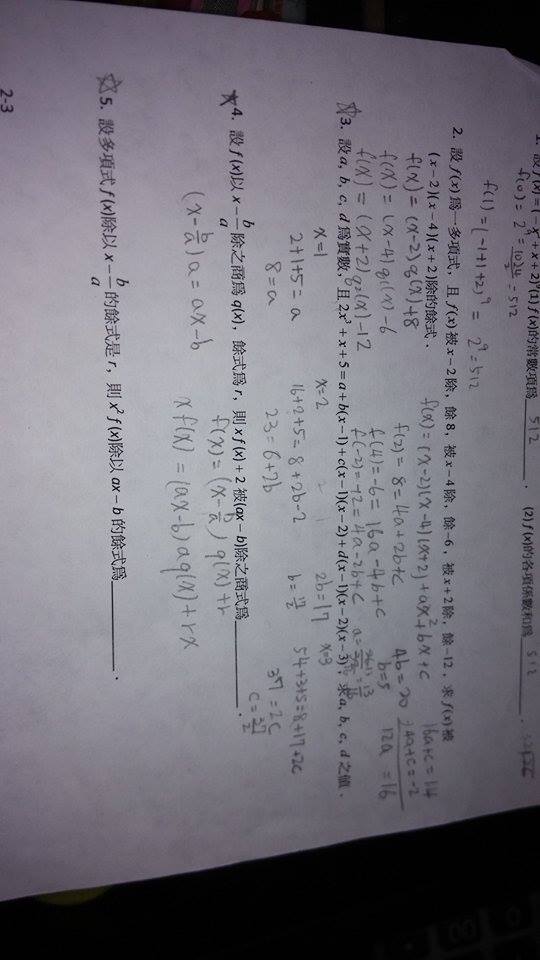 1. 設 f(x) = (-x³ + x + 2)⁹ (1) f(x)的常數項爲 512 . (2) f(x)的各項係數和爲 512 .
f(0) = 2⁹ = 512
f(1) = (-1+1+2)⁹ = 2⁹ = 512
2. 設 f(x) 爲一多項式，且 f(x) 被 x－2 除，餘 8，被 x－4 除，餘 -6，被 x＋2 除，餘 -12，求 f(x) 被
(x－2)(x－4)(x＋2)除的餘式．
f(x) = (x-2)q(x)+8
f(x) = (x-4)q(x)-6
f(x) = (x+2)q²(x)-12
f(x) = (x-2)(x-4)(x+2)+ax²+bx+c
f(2) = 8 = 4a+2b+c
f(4) = -6 = 16a-4b+c
f(-2) = -12 = 4a-2b+c
4b = 20
b = 5
16a+c = 14
4a+c = -2
12a = 16
☆3. 設 a, b, c, d 爲實數，且 2x³＋x＋5＝a＋b(x－1)＋c(x－1)(x－2)＋d(x－1)(x－2)(x－3)，求 a, b, c, d 之值．
x=1
2+1+5 = a
8 = a
x=2
16+2+5 = 8+2b-2
23 = 6+2b
2b = 17
b = 17/2
x=3
54+3+5 = 8+17+2c
37 = 2c
c = 37/2
★4. 設 f(x)以 x－b/a 除之商爲 q(x)，餘式爲 r，則 x f(x)＋2 被(ax－b)除之商式爲________．
(x-b/a)a = ax-b
f(x) = (x-b/a) q(x)+r
x f(x) = (ax-b) aq(x)+rx
☆5. 設多項式 f(x)除以 x－b/a 的餘式是 r，則 x² f(x)除以 ax－b 的餘式爲________．
2-3